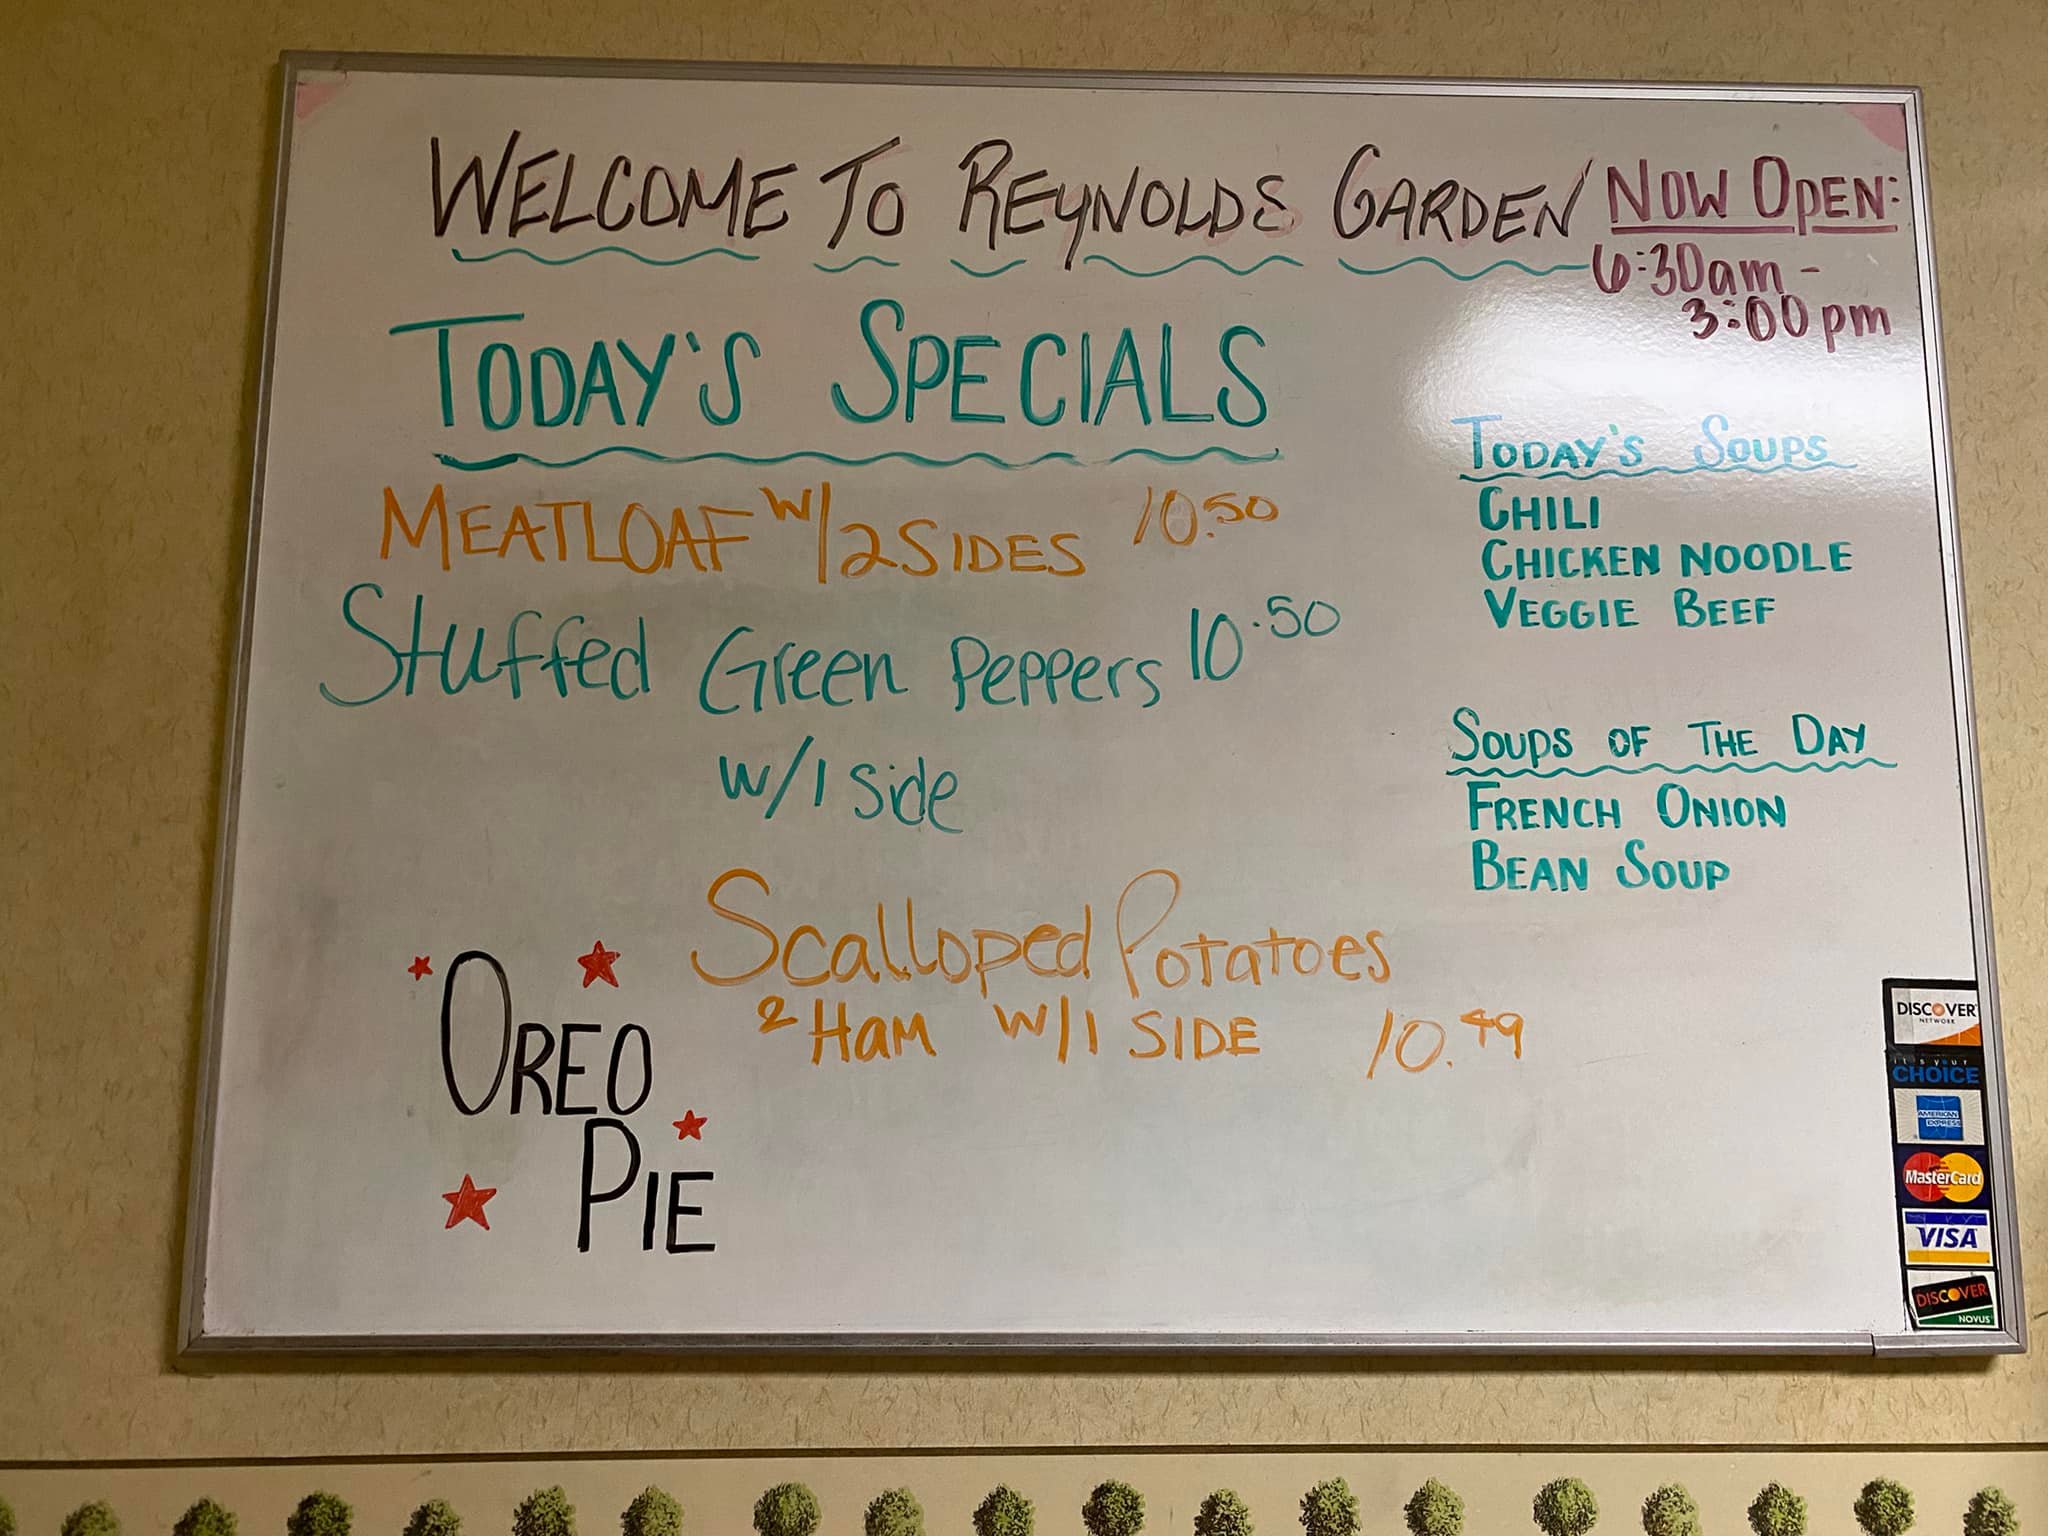 WELCOME TO REYNOLDS GARDEN
NOW OPEN:
6:30am -
3:00pm
TODAY'S SPECIALS
MEATLOAF W/2 SIDES 10.50
Stuffed Green Peppers 10.50
w/1 side
Scalloped Potatoes
2 HaM W/1 SIDE 10.49
OREO
PIE
TODAY'S SOUPS
CHILI
CHICKEN NOODLE
VEGGIE BEEF
SOUPS OF THE DAY
FRENCH ONION
BEAN SOUP
DISCOVER
NETWORK
it's your
CHOICE
AMERICAN
EXPRESS
MasterCard
VISA
DISCOVER
NOVUS